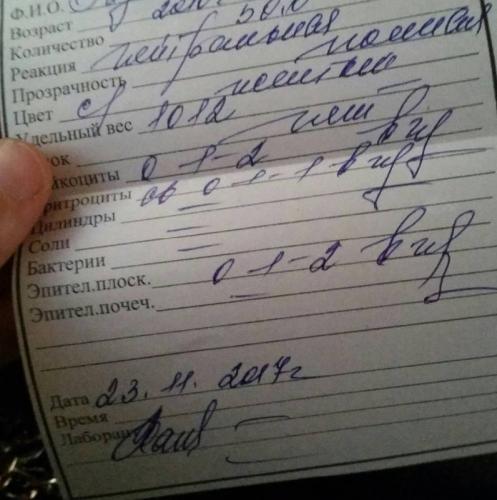 Ф.И.О.
Возраст
Количество 50,0
Реакция нейтральная
Прозрачность полная
Цвет с/ желтый
Удельный вес 1012
нет
йкоциты 0-1-2 в п/з
ритроциты 0-1-1 в п/з
Цилиндры —
Соли —
Бактерии
Эпител.плоск. 0-1-2 в п/з
Эпител.почеч. —
Дата 23.11.2017г
Время
Лаборан